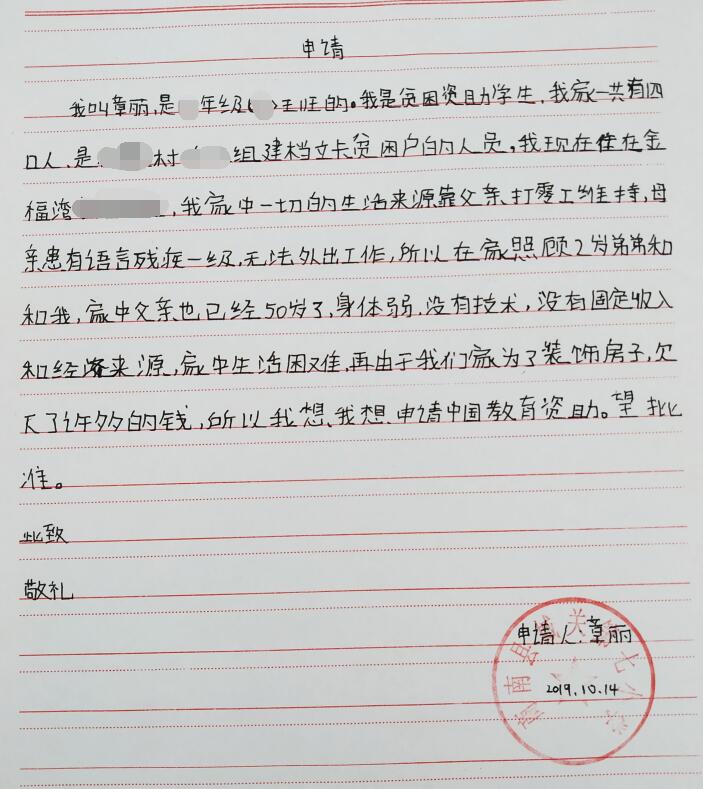 申请
我叫章丽,是年级()班的。我是贫困资助学生,我家一共有四
口人,是村组建档立卡贫困户的人员,我现在住在金
福湾,我家中一切的生活来源靠父亲打零工维持,母
亲患有语言残疾一级,无法外出工作,所以在家照顾2岁弟弟和
和我,家中父亲也已经50岁了,身体弱,没有技术,没有固定收入
和经济来源,家中生活困难,再由于我们家为了装饰房子,欠
下了许多的钱,所以我想、我想、申请中国教育资助。望批
准。
此致
敬礼
申请人:章丽
2019.10.14
南县城关第七小学